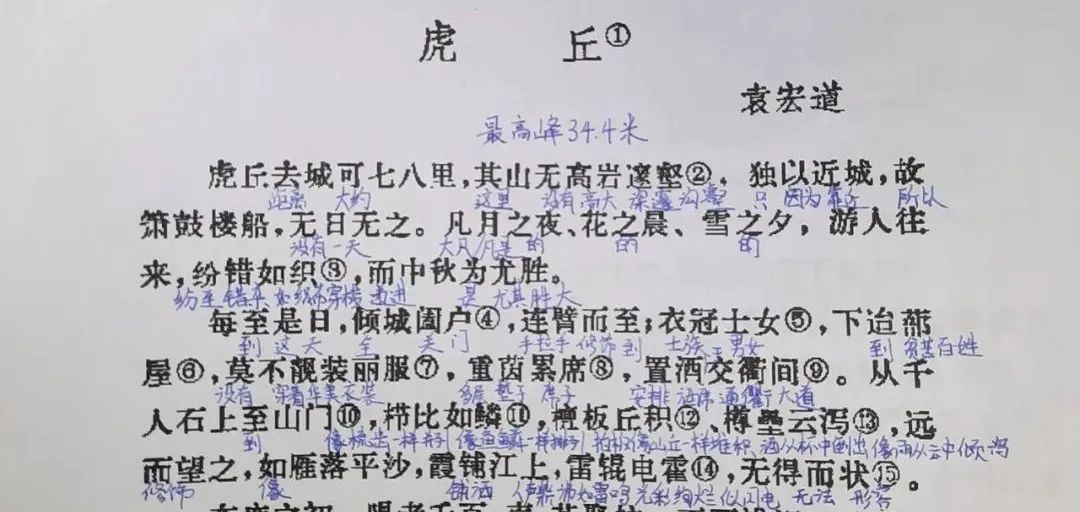 虎 丘①
袁宏道
最高峰34.4米
虎丘去城可七八里，其山无高岩邃壑②。独以近城，故
距离 大约 这里 没有高大 深邃沟壑 只 因为靠近 所以
箫鼓楼船，无日无之。凡月之夜、花之晨、雪之夕，游人往
没有一天 大凡/凡是 的 的 的
来，纷错如织③，而中秋为尤胜。
是 尤其胜大
每至是日，倾城阖户④，连臂而至；衣冠士女⑤，下迨蔀
到 这天 全 关门 手拉手 修饰 到 士族 男女 到 贫苦百姓
屋⑥，莫不靓装丽服⑦，重茵累席⑧，置酒交衢间⑨。从千
没有 穿着华美衣装 多层 垫子 席子 安排 酒席 通衢大道
人石上至山门⑩，栉比如鳞⑪，檀板丘积⑫、樽罍云泻⑬，远
到 像梳齿一样并列 像鱼鳞一样排列 拍板像山丘一样堆积 酒从杯中倒出像雨从云中倾泻
而望之，如雁落平沙，霞铺江上，雷辊电霍⑭，无得而状⑮。
修饰 像 铺洒 声鼎沸如雷鸣 光彩绚烂似闪电 无法 形容